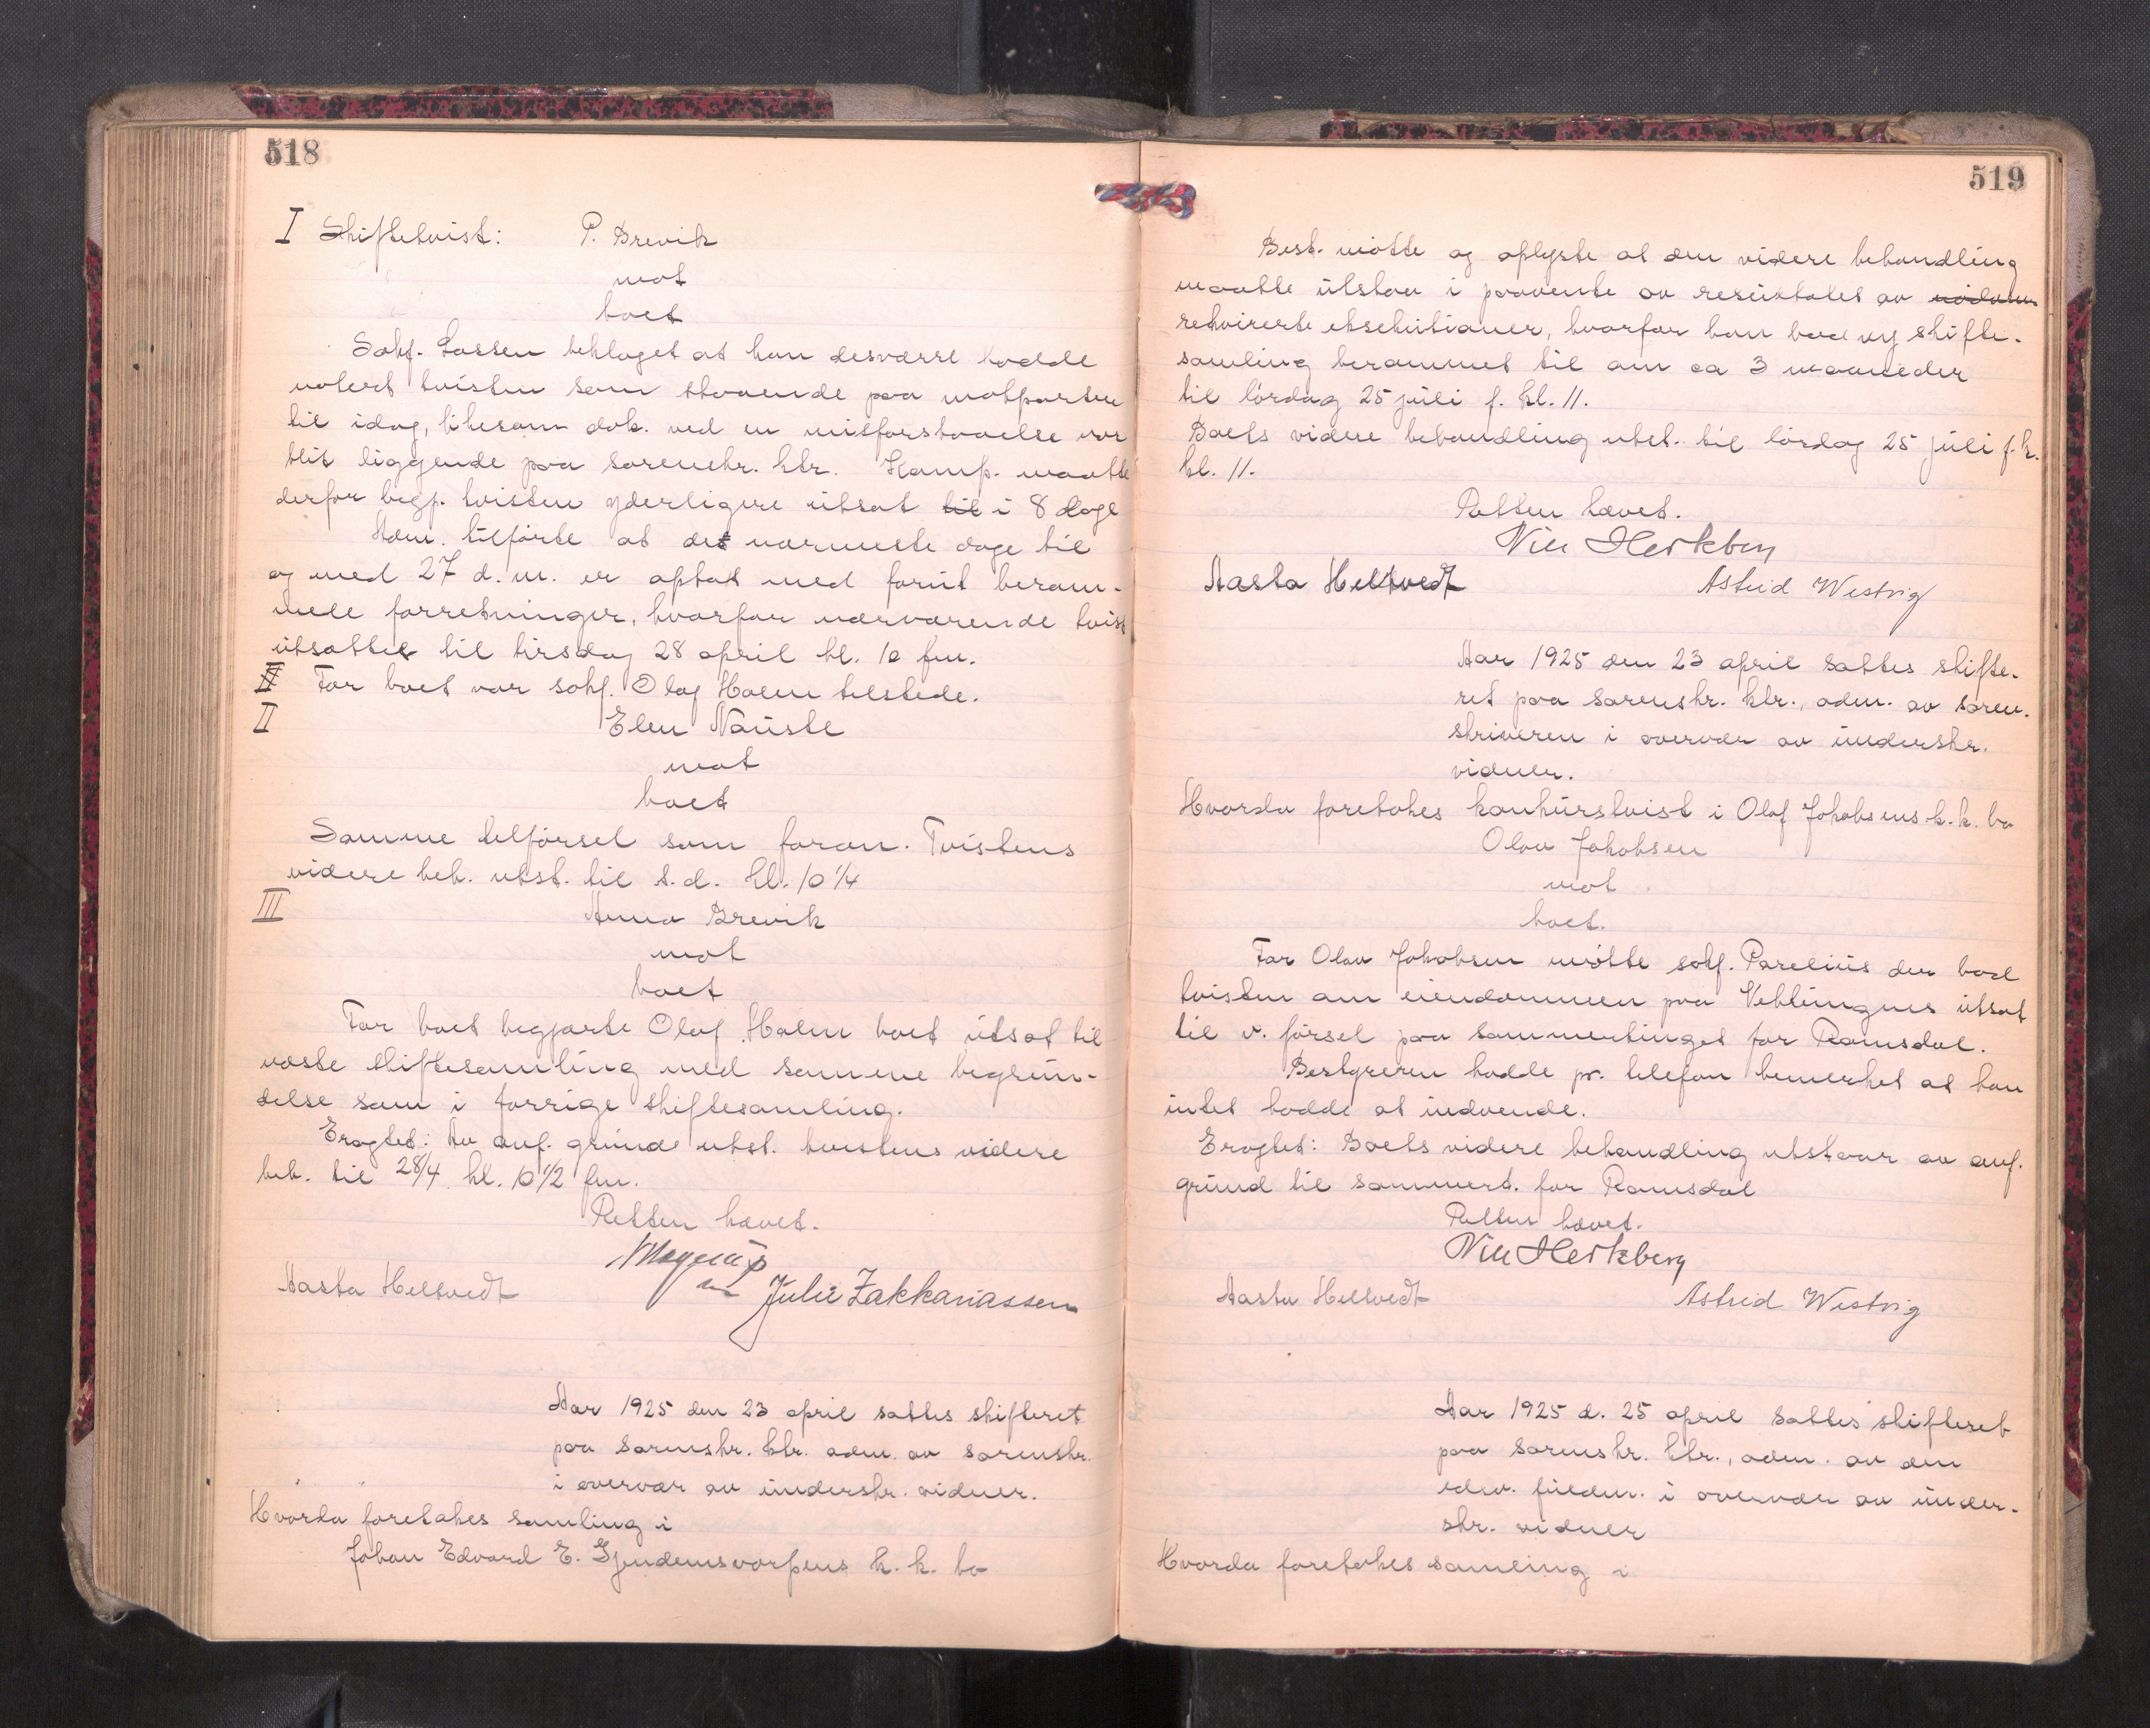 518
I Skiftetvist: P. Brevik
mot
boet
Sakf. Lossen beklaget at han desværre hadde
notert tvisten som staaende paa motparten
til idag, likesom dok. ved en misforstaaelse var
blit liggende paa sorenskr. ktr. Komp. maatte
derfor begj. tvisten yderligere utsat til i 8 dage
Adm. tilførte at det nærmeste dage til
og med 27 d. m. er optat med forut beram-
mede forretninger, hvorfor nærværende tvist
utsattes til tirsdag 28 april kl. 10 fm.
For boet var sakf. Olaf Holm tilstede.
II
Elen Nauste
mot
boet
Samme tilførsel som foran. Tvistens
videre beh. utst. til s.d. kl. 10 1/4
III
Anna Brevik
mot
boet
For boet begjærte Olaf Holm boet utsat til
næste skiftesamling med samme begrun-
delse som i forrige skiftesamling.
Eragtet: Av anf. grunde utst. tvistens videre
beh. til 28/4 kl. 10 1/2 fm.
Retten hævet.
Aasta Heltvedt
Julie Zakkariassen
Aar 1925 den 23 april sattes skifteret
paa sorenskr. ktr. adm. av sorenskr.
i overvær av underskr. vidner.
Hvorda foretakes samling i
Johan Edvard E. Gjendemsvorpens k. k. bo
519
Best. møtte og oplyste at den videre behandling
maatte utstaa i paavente av resultatet av
rekvirerte eksekutioner, hvorfor han bad ny skifte-
samling berammet til om ca 3 maaneder
til lørdag 25 juli f. kl. 11.
Boets videre behandling utst. til lørdag 25 juli f. k.
kl. 11.
Retten hævet.
Aasta Heltvedt
Astrid Westvig
Aar 1925 den 23 april sattes skifte-
ret paa sorenskr. ktr., adm. av soren-
skriveren i overvær av underskr.
vidner.
Hvorda foretakes konkurstvist i Olaf Jakobsens k. k. bo
Olav Jakobsen
mot
boet.
For Olav Jakobsen møtte sakf. Parelius der bad
tvisten om eiendommen paa Veblungnes utsat
til v. førsel paa sommertinget for Romsdal.
Bestyreren hadde pr. telefon bemerket at han
intet hadde at indvende.
Eragtet: Boets videre behandling utstaar av anf.
grund til sommert. for Romsdal
Retten hævet.
Aasta Heltvedt
Astrid Westvig
Aar 1925 d. 25 april sattes skifteret
paa sorenskr. ktr., adm. av den
edsv. fuldm. i overvær av under-
skr. vidner
Hvorda foretakes samling i